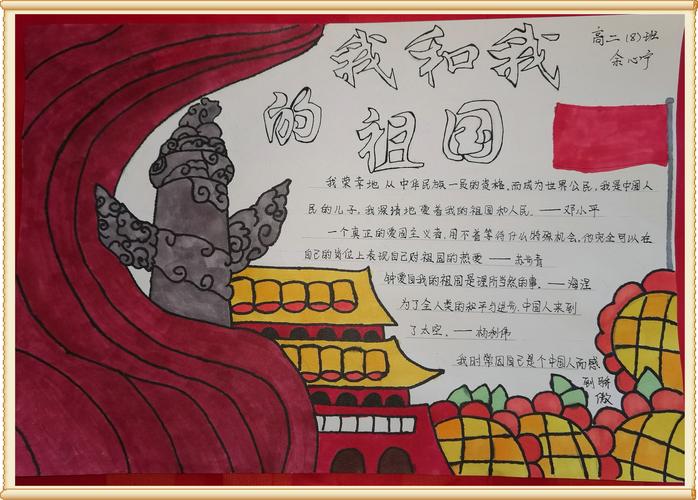 我和我
的祖国
高二(8)班
余心宁
我荣幸地从中华民族一员的资格,而成为世界公民。我是中国人
民的儿子。我深情地爱着我的祖国和人民。——邓小平
一个真正的爱国主义者,用不着等待什么特殊机会,他完全可以在
自己的岗位上表现自己对祖国的热爱——苏步青
钟爱自我的祖国是理所当然的事。——海涅
为了全人类的和平与进步,中国人来到
了太空。——杨利伟
我时常因自己是个中国人而感
到骄
傲